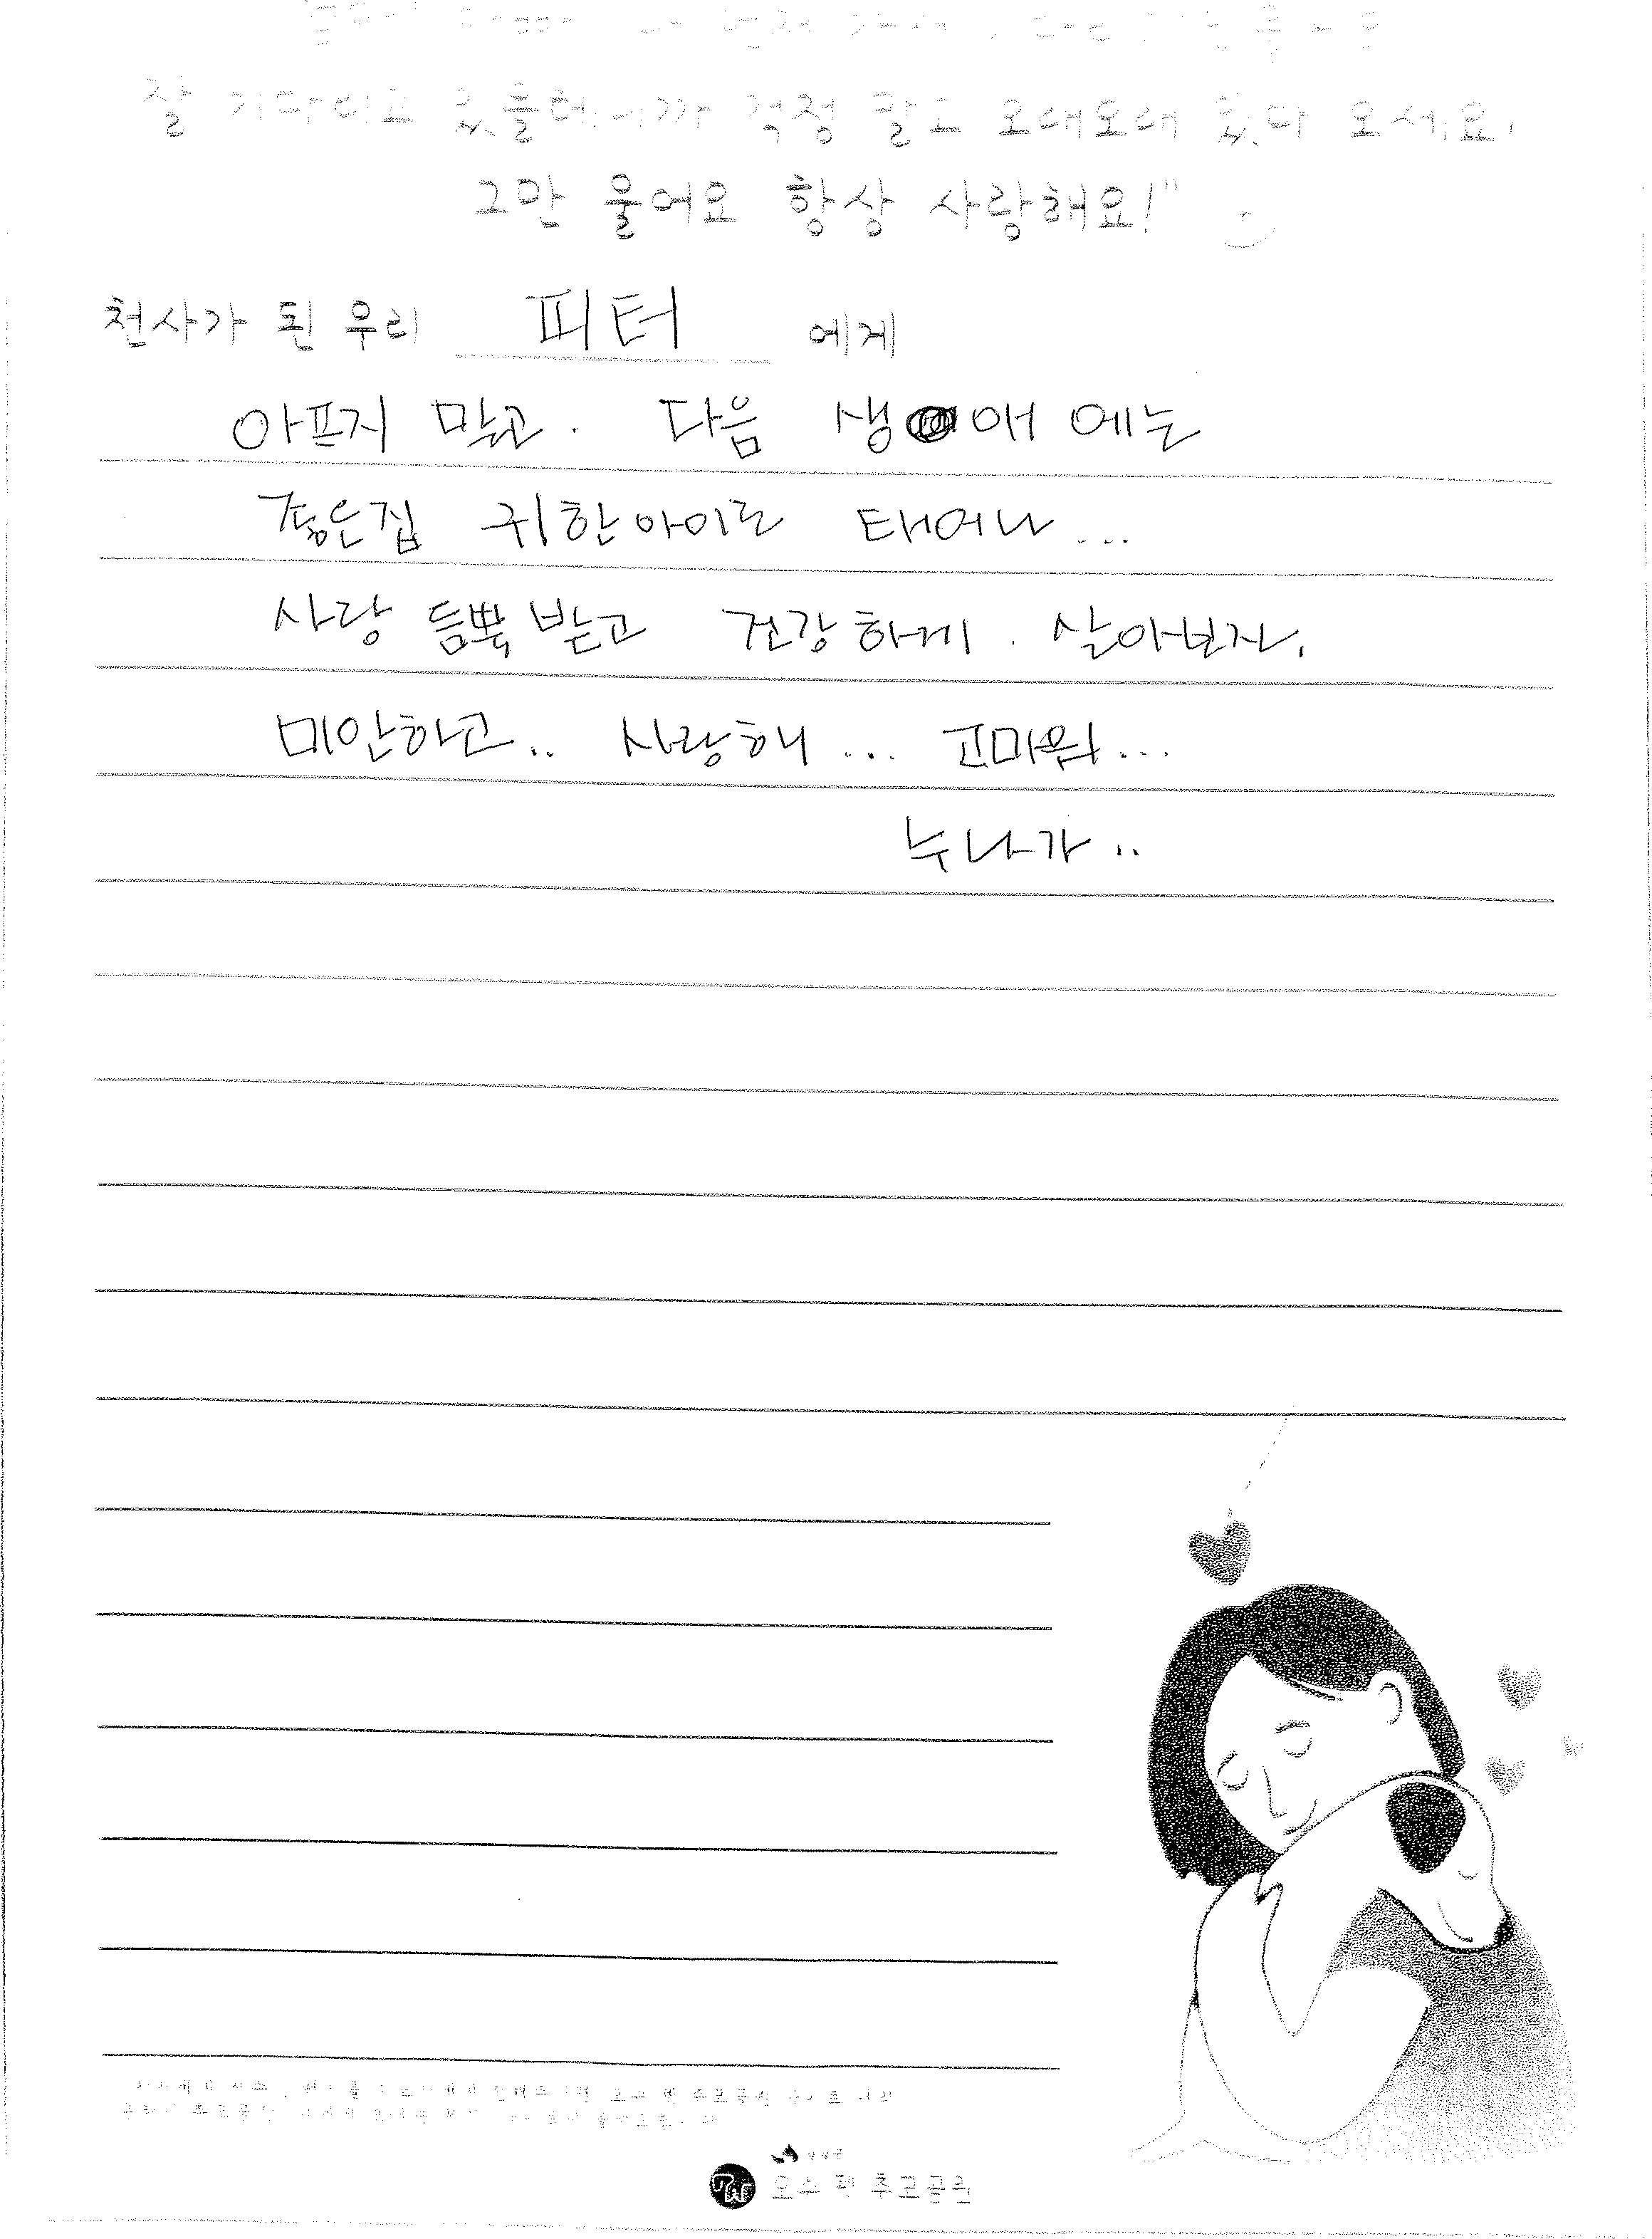 잘 기다리고 있을테니까 걱정 말고 오래오래 있다 오세요.
그만 울어요 항상 사랑해요!"
천사가 된 우리 피터 에게
아프지 말고. 다음 생애 에는
좋은집 귀한아이로 태어나...
사랑 듬뿍받고 건강하게. 살아보자.
미안하고.. 사랑해... 고마워...
누나가..
추모공원